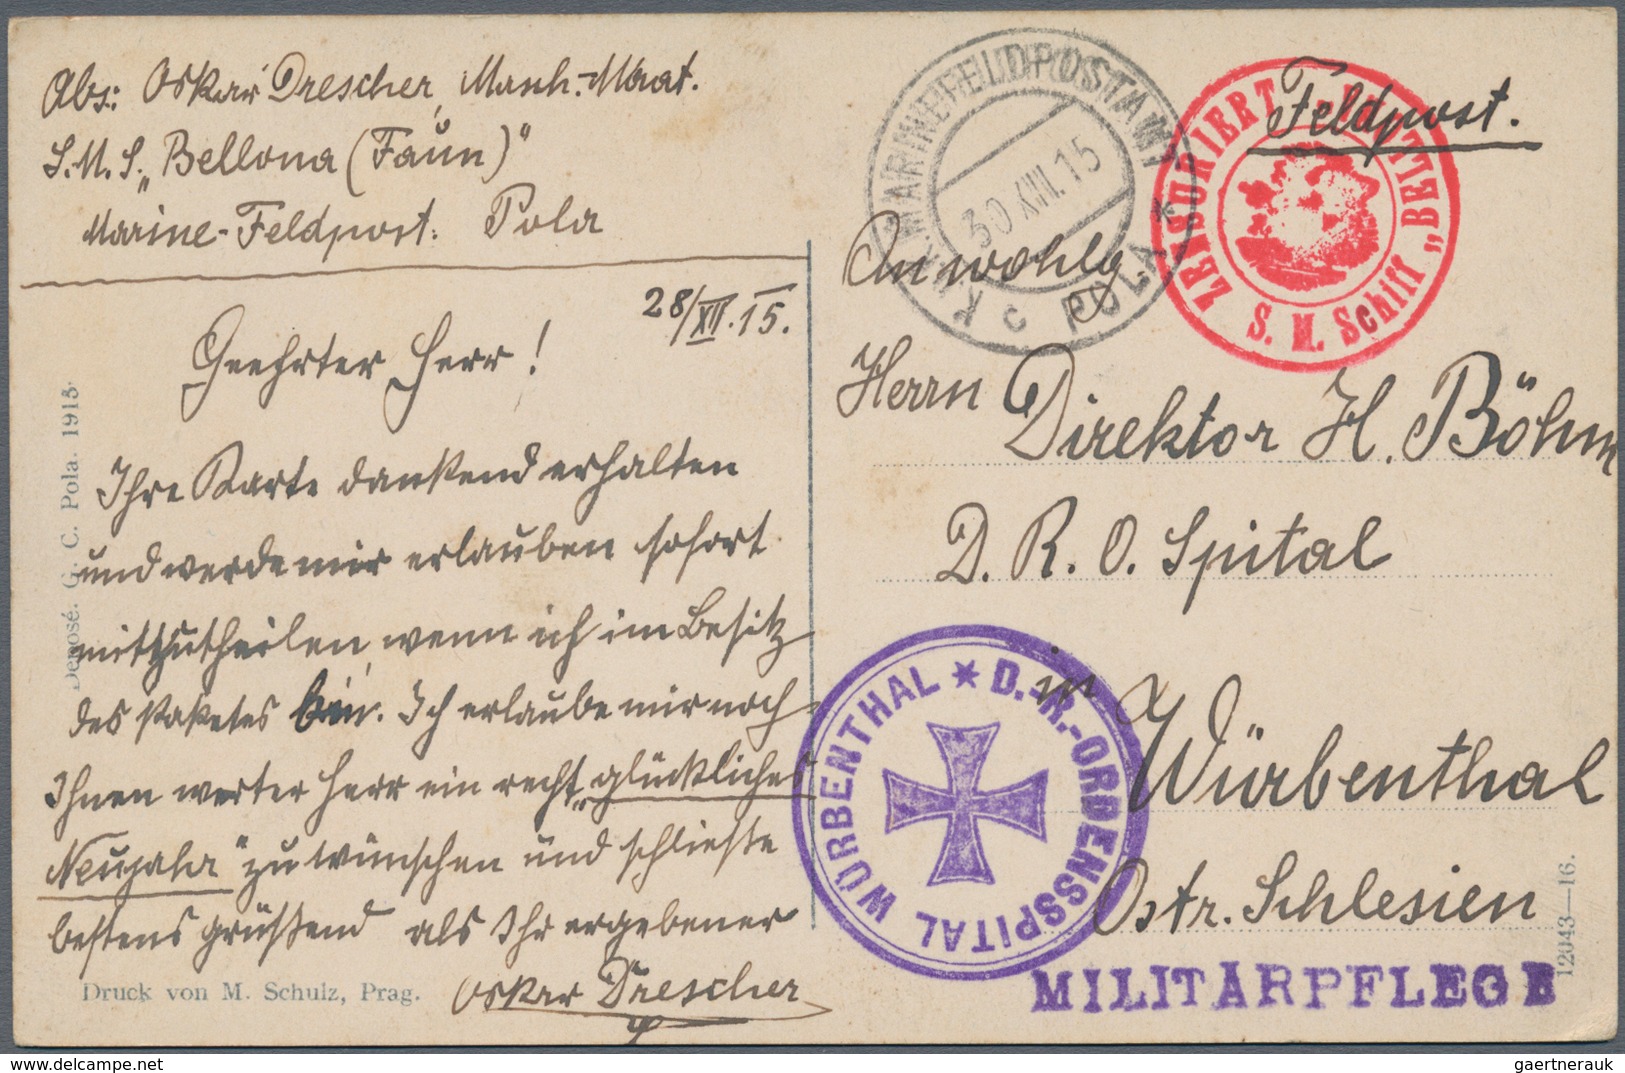 Abs: Oskar Drescher, Masch.-Maat.
S.M.S. „Bellona (Faun)"
Marine-Feldpost: Pola
28/XII.15.
Geehrter Herr!
Ihre Karte dankend erhalten
und werde mir erlauben sofort
mittzutheilen, wenn ich im Besitz
des Paketes bin. Ich erlaube mir noch
Ihnen werter Herr ein recht „glückliches
Neujahr" zu wünschen und schließe
bestens grüßend als Ihr ergebener
Oskar Drescher
Deposé. G. C. Pola. 1915.
Druck von M. Schulz, Prag.
K.u.K. MARINEFELDPOSTAMT
30 XII. 15
c POLA *
ZENSURIERT
S. M. Schiff „BELLONA"
Feldpost.
An wohlg
Herrn Direktor H. Böhm
D. R. O. Spital
in
Würbenthal
Östr. Schlesien
D.-R.-ORDENSSPITAL WÜRBENTHAL *
MILITÄRPFLEGE
12043—16.
www.delcampe.net
gaertnerauk